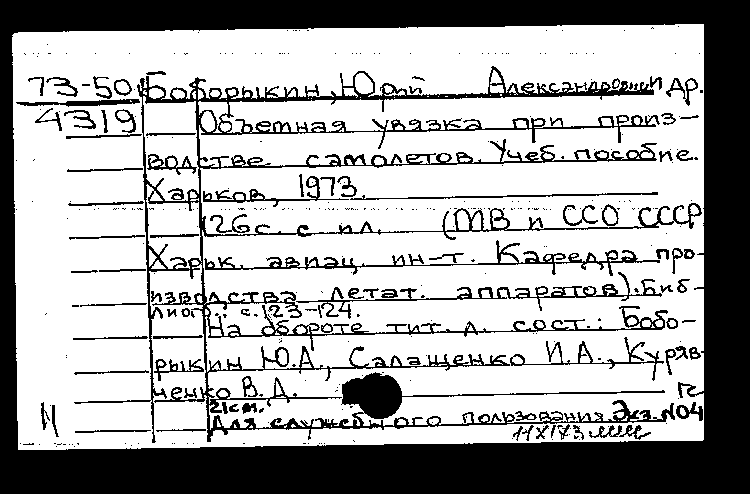 73-50 Боборыкин, Юрий Александрович и др.
4319 Объемная увязка при произ-
водстве самолетов. Учеб. пособие.
Харьков, 1973.
126 с. с ил. (МВ и ССО СССР
Харьк. авиац. ин-т. Кафедра про-
изводства летат. аппаратов). Биб-
лиогр.: с. 123-124.
На обороте тит. л. сост.: Бобо-
рыкин Ю.А., Салащенко И.А., Куряв-
ченко В.Д.
21 см.
Для служебного пользования. Экз. №04